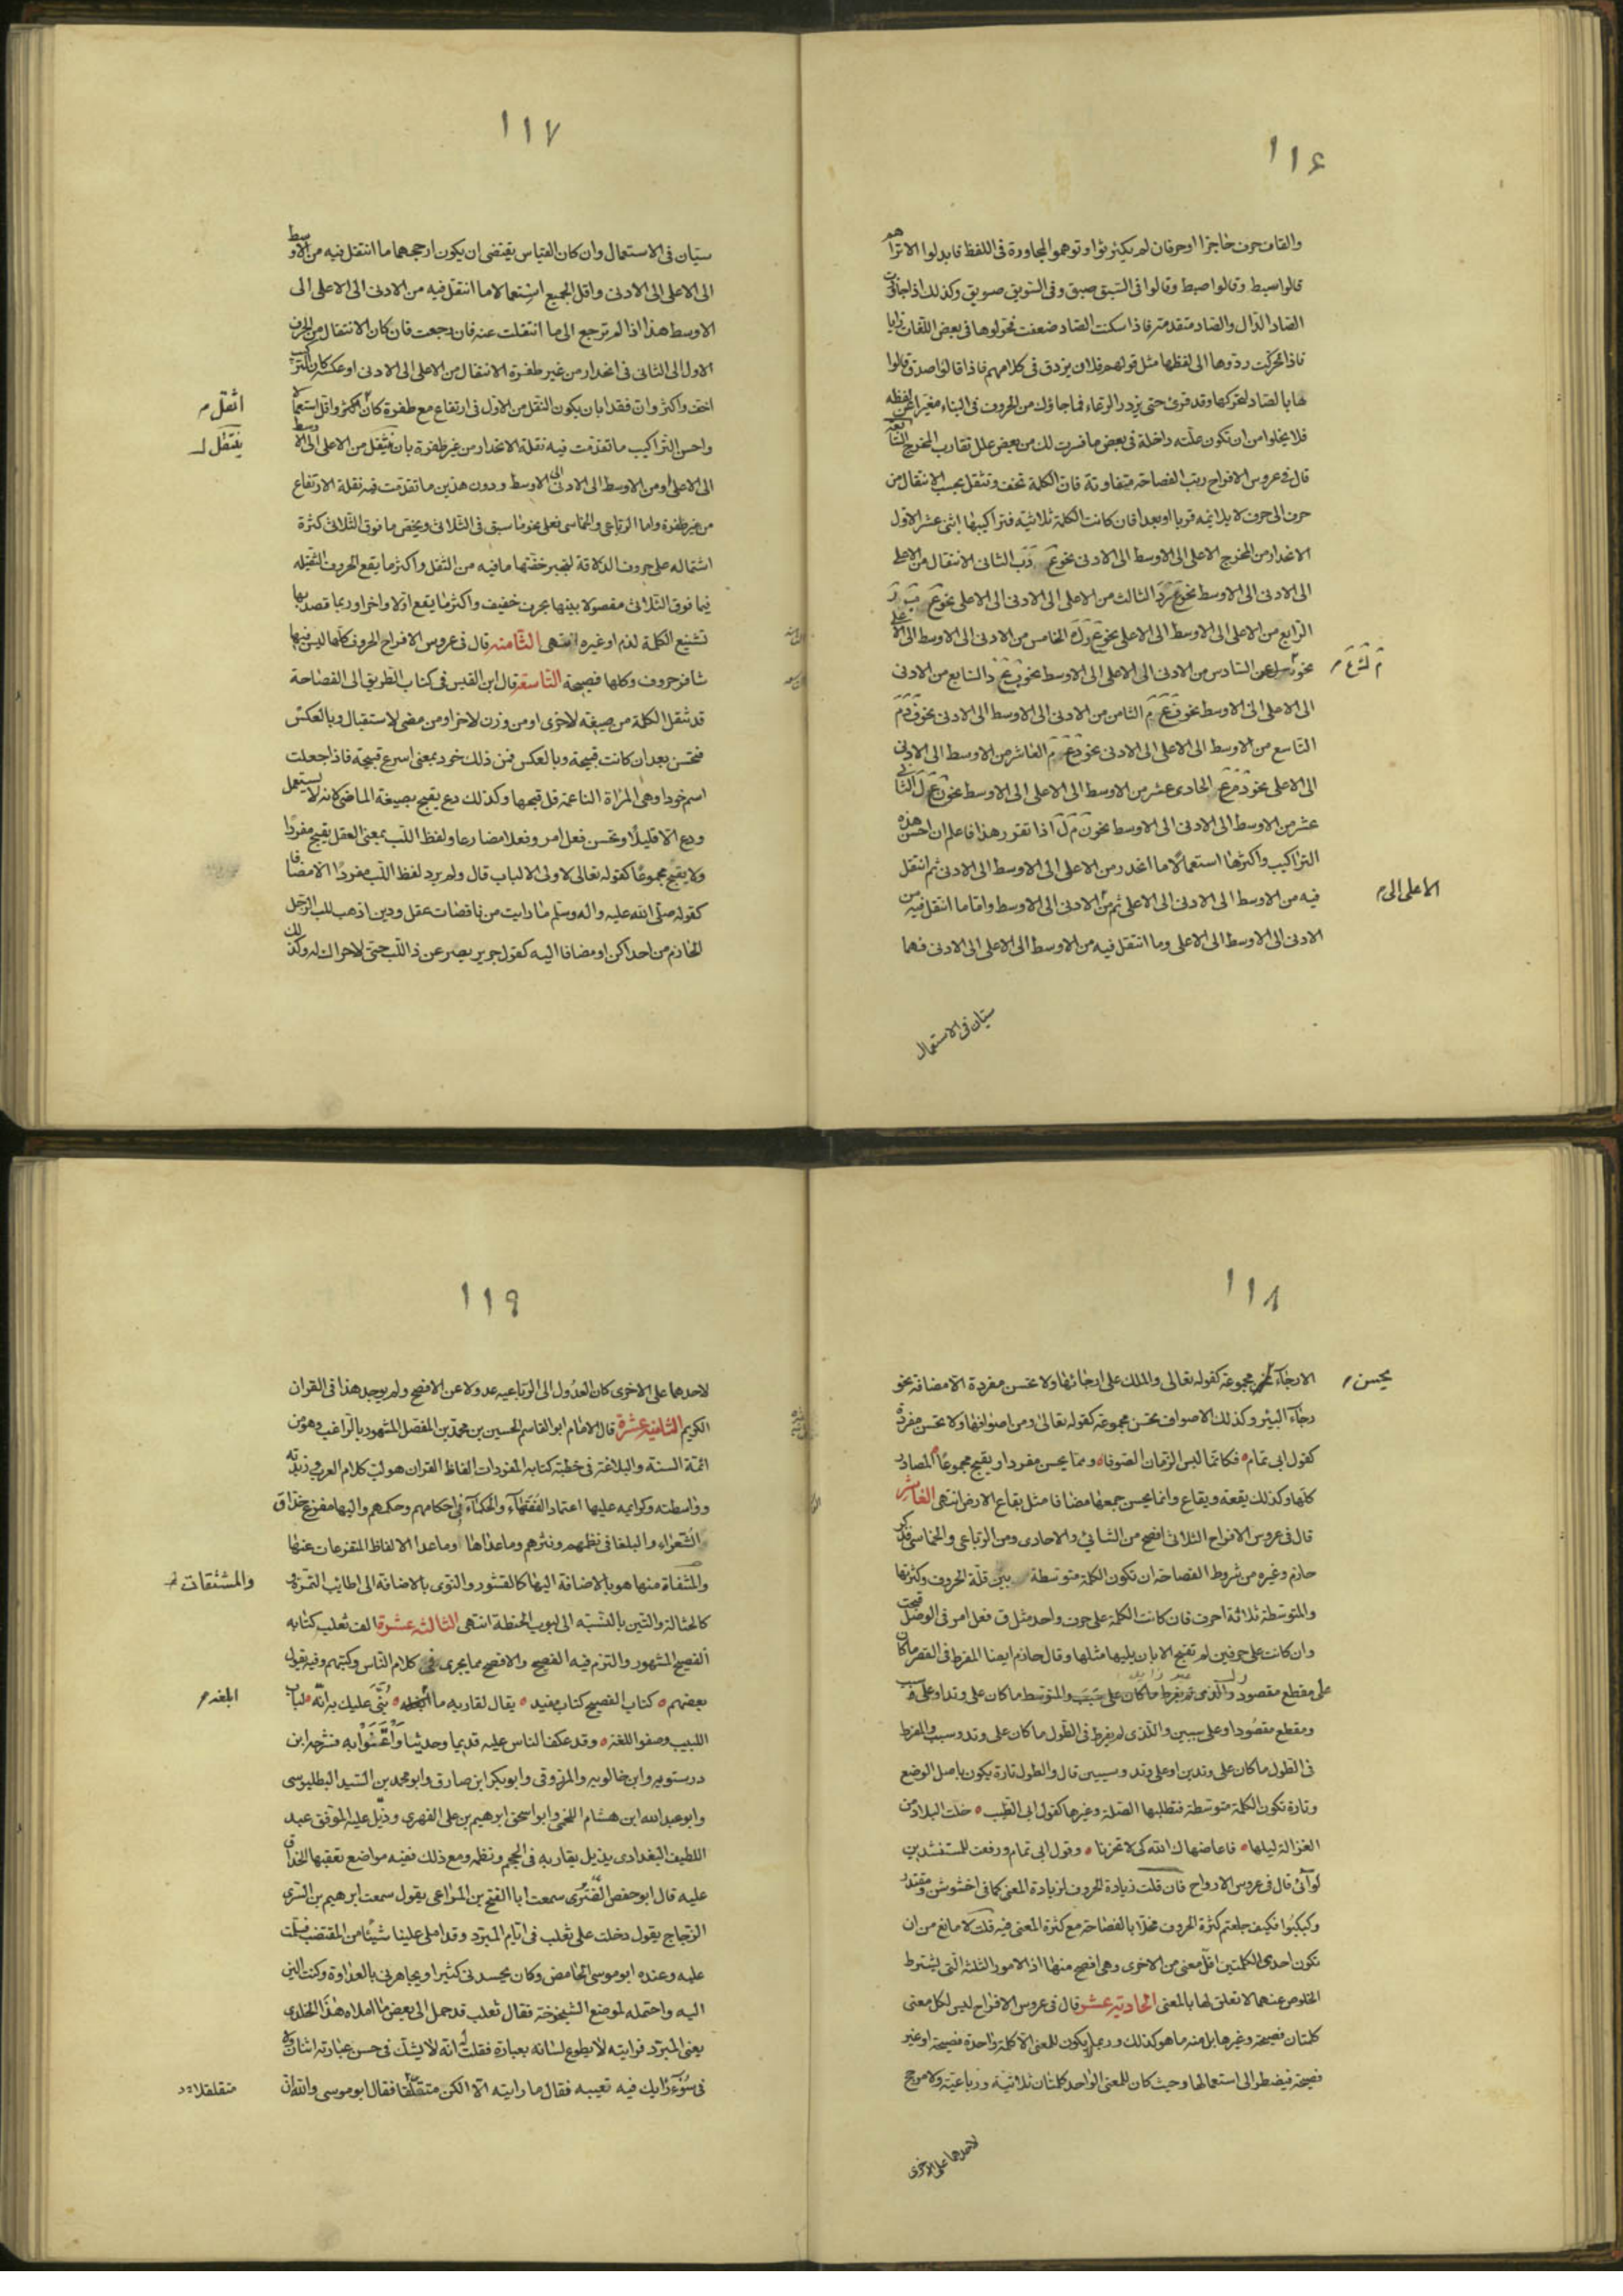 ١١٦
والقاف حرف حاجزا او حرفان لم يكترثوا وتوهموا المجاورة فى اللفظ فابدلوا الا تراهم
قالوا سبط وقالوا صبط وقالوا فى السبق صبق وفى السويق صويق وكذلك اذا جاورت
الصاد الدال والصاد متقدمة فاذا سكنت الصاد ضعفت فحولوها فى بعض اللغات زايا
فاذا تحركت ردوها الى لفظها مثل قولهم فلان يزدق فى كلامهم فاذا قالوا صدق قالوا
ها بالصاد لتحركها وقد قرئ حتى يزدر الرعاء فما جاؤك من الحروف فى البناء مغيرا عن لفظه
فلا يخلوا من ان تكون علته داخلة فى بعض ما فسرت لك من بعض علل تقارب المخرج السابعة
قال فى عروس الافراح رتب الفصاحة متفاوتة فان الكلمة تخف وتثقل بحسب الانتقال من
حرف الى حرف لا يلائمه قربا او بعدا فان كانت الكلمة ثلاثية فتراكيبها اثنى عشر الاول
الانحدار من المخرج الاعلى الى الاوسط الى الادنى نحو ع د ب الثانى الانتقال من الاعلى
الى الادنى الى الاوسط نحو ع ر د الثالث من الاعلى الى الادنى الى الاعلى نحو ع
الرابع من الاعلى الى الاوسط الى الاعلى نحو ع الخامس من الادنى الى الاوسط الى الاعلى
م ل ع م
نحو السادس من الادنى الى الاعلى الى الاوسط نحو السابع من الادنى
الى الاعلى الى الاوسط نحو ف ع م الثامن من الادنى الى الاوسط الى الادنى نحو ف د م
التاسع من الاوسط الى الاعلى الى الادنى نحو د ع م العاشر من الاوسط الى الادنى
الى الاعلى نحو د م ع الحادى عشر من الاوسط الى الاعلى الى الاوسط نحو ن ع ل الثانى
عشر من الاوسط الى الادنى الى الاوسط نحو ن م ل اذا تقرر هذا فاعلم ان احسن هذه
التراكيب واكثرها استعمالا ما انحدر من الاعلى الى الاوسط الى الادنى ثم انتقل
الاعلى الى م
فيه من الاوسط الى الادنى الى الاعلى ثم من الادنى الى الاوسط واما ما انتقل فيه من
الادنى الى الاوسط الى الاعلى وما انتقل فيه من الاوسط الى الاعلى الى الادنى فهما
سيان فى الاستعمال
١١٧
سيان فى الاستعمال وان كان القياس يقتضى ان يكون ارجحهما ما انتقل فيه من الاوسط
الى الاعلى الى الادنى واقل الجميع استعمالا ما انتقل فيه من الادنى الى الاعلى الى
الاوسط هذا اذا لم ترجع الى ما انتقلت عنه فان رجعت فان كان الانتقال من الحرف
الاول الى الثانى فى انحدار من غير طفرة الانتقال من الاعلى الى الادنى او عكسه كان التركيب
اخف واكثر وان فقد ابان يكون النقل من الاول فى ارتفاع مع طفرة كان اكثر واقل استعمالا
اثقل م
واحسن التراكيب ما تقدمت فيه نقلة الانحدار من غير طفرة بان ينتقل من الاعلى الى الاوسط
ينتقل
الى الاعلى او من الاوسط الى الادنى الى الاوسط ودون هذين ما تقدمت فيه نقلة الارتفاع
من غير طفرة واما الرباعى والخماسى فعلى نحو ما سبق فى الثلاثى ويختص ما فوق الثلاثى كثرة
اشتماله على حروف الذلاقة لتجبر خفتها ما فيه من الثقل واكثر ما يقع الحروف الثقيلة
فيما فوق الثلاثى مفصولا بينها بحرف خفيف واكثر ما يقع اولا واخرا وربما قصد بها
تشنيع الكلمة لذم او غيره انتهى الثامنة قال فى عروس الافراح الحروف كلها ليس فيها
تنافر حروف وكلها فصيحة التاسعة قال ابن النفيس فى كتاب الطريق الى الفصاحة
قد تنقل الكلمة من صيغة لاخرى او من وزن لاخر او من مضى لاستقبال وبالعكس
فتحسن بعد ان كانت قبيحة وبالعكس فمن ذلك خود بمعنى اسرع قبيحة فاذا جعلت
اسم خود وهى المراة الناعمة قل قبحها وكذلك دع يقبح بصيغة الماضى لانه لا يستعمل
ودع الا قليلا وتحسن فعل امر وفعلا مضارعا ولفظ اللب بمعنى العقل يقبح مفردا
ولا يقبح مجموعا كقوله تعالى لاولى الالباب قال ولم يرد لفظ اللب مفردا الا مضافا
كقوله صلى الله عليه واله وسلم ما رايت من ناقصات عقل ودين اذهب للب الرجل
الحازم من احداكن او مضافا اليه كقول جرير يصرعن ذا اللب حتى لا حراك له وكذلك
١١٨
الارجاء تحسن مجموعة كقوله تعالى والملك على ارجائها ولا تحسن مفردة الا مضافة نحو
يحسن م
رجاء البئر وكذلك الاصواف تحسن مجموعة كقوله تعالى ومن اصوافها ولا تحسن مفردة
كقول ابى تمام فكانما لبس الزمان الصوفا ومما يحسن مفردا ويقبح مجموعا المصادر
كلها وكذلك بقعة وبقاع وانما يحسن جمعها مضافا مثل بقاع الارض انتهى العاشرة
قال فى عروس الافراح الثلاثى افصح من الثنائى والاحادى ومن الرباعى والخماسى فذكر
حازم وغيره من شروط الفصاحة ان تكون الكلمة متوسطة بين قلة الحروف وكثرتها
والمتوسطة ثلاثة احرف فان كانت الكلمة على حرف واحد مثل ق فعل امر فى الوصل قبحت
وان كانت على حرفين لم تقبح الا بان يليها مثلها وقال حازم ايضا المفرط فى القصر ما كان
على مقطع مقصور والذى لم يفرط ما كان على سبب والمتوسط ما كان على وتد او على سبب
ومقطع مقصور او على سببين والذى لم يفرط فى الطول ما كان على وتد وسبب والمفرط
فى الطول ما كان على وتدين او على وتد وسببين قال والطول تارة يكون باصل الوضع
وتارة تكون الكلمة متوسطة فتطلبها الصلة وغيرها كقول ابى الطيب خلت البلاد من
الغزالة ليلها فاعاضهاك الله كى لا تحزنا وقول ابى تمام ورفعت للمستنشدين
لوائى قال فى عروس الارواح فان قلت زيادة الحروف لزيادة المعنى كما فى اخشوشن ومقتدر
وكبكبوا فكيف جعلتم كثرة الحروف مخلا بالفصاحة مع كثرة المعنى فيه قلت لا مانع من ان
تكون احدى الكلمتين اقل معنى من الاخرى وهى افصح منها اذ الامور الثلثة التى يشترط
الخلوص عنهما لا تعلق لها بالمعنى الحادية عشر قال فى عروس الافراح ليس لكل معنى
كلمتان فصيحة وغيرها بل منه ما هو كذلك وربما يكون للمعنى الا كلمة واحدة فصيحة او غير
فصيحة فيضطر الى استعمالها وحيث كان للمعنى الواحد كلمتان ثلاثية ورباعية ولا مرجح
لاحدهما على الاخرى
١١٩
لاحدهما على الاخرى كان العدول الى الرباعيه عدولا عن الافصح ولم يوجد هذا فى القران
الكريم الثانية عشرة قال الامام ابو القاسم الحسين بن محمد بن المفضل المشهور بالراغب وهو من
ائمة السنة والبلاغة فى خطبة كتابه المفردات الفاظ القران هو لب كلام العرب وزبدته
وواسطته وكرائمه عليها اعتماد الفقهاء والحكماء فى احكامهم وحكمهم واليها مفزع حذاق
الشعراء والبلغا فى نظمهم ونثرهم وما عداها وما عدا الالفاظ المتفرعات عنها
والمثفاة منها هو بالاضافة اليها كالقشور والنوى بالاضافة الى اطايب الثمرة و
والمشتقات
كالحثالة والتبن بالنسبة الى لبوب الحنطة انتهى الثالثة عشرة الف ثعلب كتابه
الفصيح المشهور والتزم فيه الفصيح والافصح مما يجرى فى كلام الناس وكتبهم وفيه يقول
بعضهم كتاب الفصيح كتاب مفيد يقال لقاريه ما ابلغه بنى عليك به انه لباب
ابلغه م
اللبيب وصفو اللغة وقد عكف الناس عليه قديما وحديثا واعتنوا به فشرحه ابن
درستويه وابن خالويه والمرزوقى وابو بكر ابن صارق وابو محمد بن السيد البطليوسى
وابو عبد الله ابن هشام اللخمى وابو اسحق ابرهيم بن على الفهرى وذيل عليه الموفق عبد
اللطيف البغدادى بذيل يقاربه فى الحجم ونظمه ومع ذلك ففيه مواضع تعقبها الحذاق
عليه قال ابو حفص الضرير سمعت ابا الفتح بن المراعى يقول سمعت ابرهيم بن السرى
الزجاج يقول دخلت على ثعلب فى ايام المبرد وقد املى علينا شيئا من المقتضب فسلمت
عليه وعنده ابو موسى الحامض وكان يحسدنى كثيرا ويجاهرنى بالعداوة وكنت الين
اليه واحتمله لموضع الشيخوخة فقال ثعلب قد حمل الى بعض ما املاه هذا الخلدى
يعنى المبرد فرايته لا يطوع لسانه بعبارة فقلت انه لا يشك فى حسن عبارته اثنان و
فى سوء رايك فيه تعيبه فقال ما رايته الا الكن متفلقا فقال ابو موسى والله ان
متقلقلا